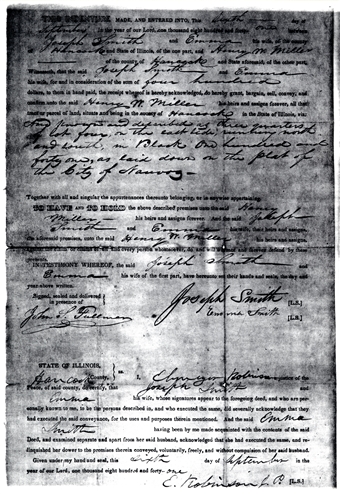 THIS INDENTURE, MADE, AND ENTERED INTO, This sixth day of
September in the year of our Lord, one thousand eight hundred and forty
Joseph Smith and Emma
Hancock and State of Illinois, of the one part, and Henry W Miller
of the county of Hancock and State aforesaid, of the other part,
Witnesseth, that the said Joseph Smith and Emma
his wife, for and in consideration of the sum of four hundred
dollars, to them in hand paid, the receipt whereof is hereby acknowledged, do hereby grant, bargain, sell, convey, and
confirm unto the said Henry W Miller his heirs and assigns forever, all that
tract or parcel of land, situate and being in the county of Hancock in the State of Illinois, viz:
three quarters
of lot four, on the east side, running north
and south, in Block One hundred and
forty one, as laid down on the plat of
the City of Nauvoo
Together with all and singular the appurtenances thereunto belonging, or in anywise appertaining.
TO HAVE AND TO HOLD the above described premises unto the said Henry
Miller his heirs and assigns forever. And the said Joseph
Smith and Emma his wife, their heirs and assigns,
the aforesaid premises, unto the said Henry W Miller his heirs and assigns,
every person whomsoever, do and will warrant and forever defend by
IN TESTIMONY WHEREOF, the said Joseph Smith and
Emma his wife of the first part, have hereunto set their hands and seals, the day and
year above written.
Signed, sealed and delivered
in presence of
Joseph Smith [L.S.]
Emma Smith [L.S.]
[L.S.]
STATE OF ILLINOIS,
Hancock County, } ss. I, Ebenezer Robinson a justice of the
Peace, of said county, do certify, that Joseph Smith and
Emma his wife, whose signatures appear to the foregoing deed, and who are per-
sonally known to me to be the persons described in, and who executed the same, did severally acknowledge that they
had executed the said conveyance, for the uses and purposes therein mentioned. And the said Emma
Smith having been by me made acquainted with the contents of the said
Deed, and examined separate and apart from her said husband, acknowledged that she had executed the same, and re-
linquished her dower to the premises therein conveyed, voluntarily, freely, and without compulsion of her said husband.
Given under my hand and seal, this sixth day of September in the
year of our Lord, one thousand eight hundred and forty-one
E. Robinson J. P. [L.S.]